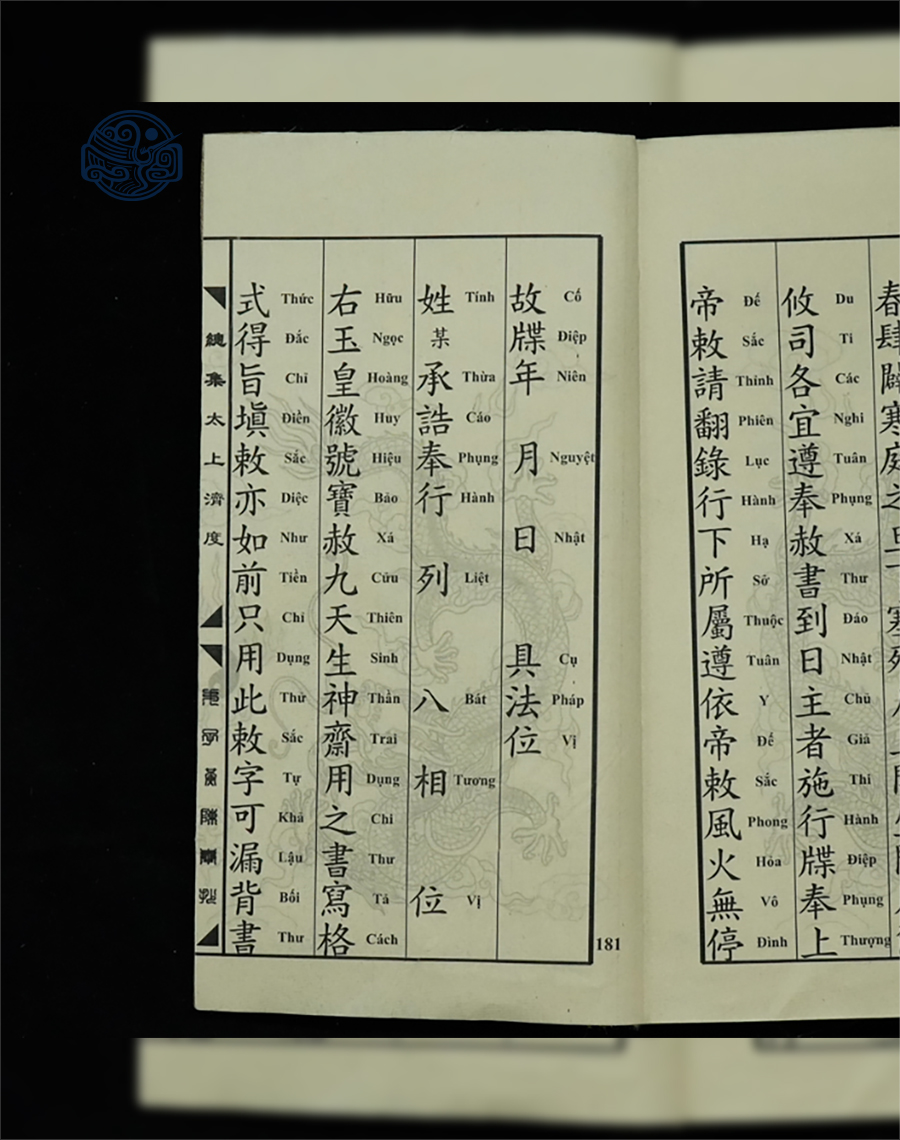 攸司各宜遵奉赦書到日主者施行牒奉上
Du Ti Các Nghi Tuân Phụng Xá Thư Đáo Nhật Chủ Giả Thi Hành Điệp Phụng Thượng
帝敕請翻錄行下所屬遵依帝敕風火無停
Đế Sắc Thỉnh Phiên Lục Hành Hạ Sở Thuộc Tuân Y Đế Sắc Phong Hỏa Vô Đình
故牒年 月 日 具法位
Cố Điệp Niên Nguyệt Nhật Cụ Pháp Vị
姓某承誥奉行 列 八 相 位
Tính Thừa Cáo Phụng Hành Liệt Bát Tương Vị
右玉皇徽號寶赦九天生神齋用之書寫格
Hữu Ngọc Hoàng Huy Hiệu Bảo Xá Cửu Thiên Sinh Thần Trai Dụng Chi Thư Tả Cách
式得旨塡敕亦如前只用此敕字可漏背書
Thức Đắc Chỉ Điền Sắc Diệc Như Tiền Chỉ Dụng Thử Sắc Tự Khả Lậu Bối Thư
總集太上濟度
181